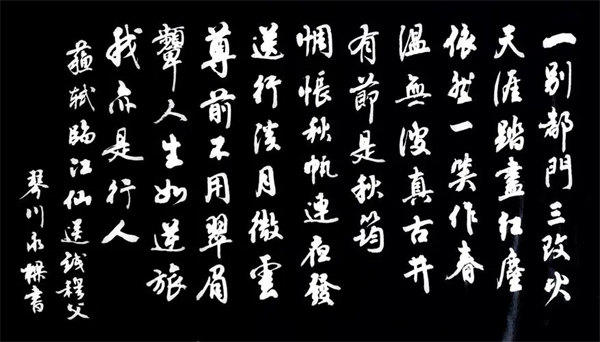 一別都門三改火
天涯踏盡紅塵
依然一笑作春
溫無波真古井
有節是秋筠
惆悵孤帆連夜發
送行淡月微雲
尊前不用翠眉
顰人生如逆旅
我亦是行人
蘇軾臨江仙送錢穆父
琴川永書